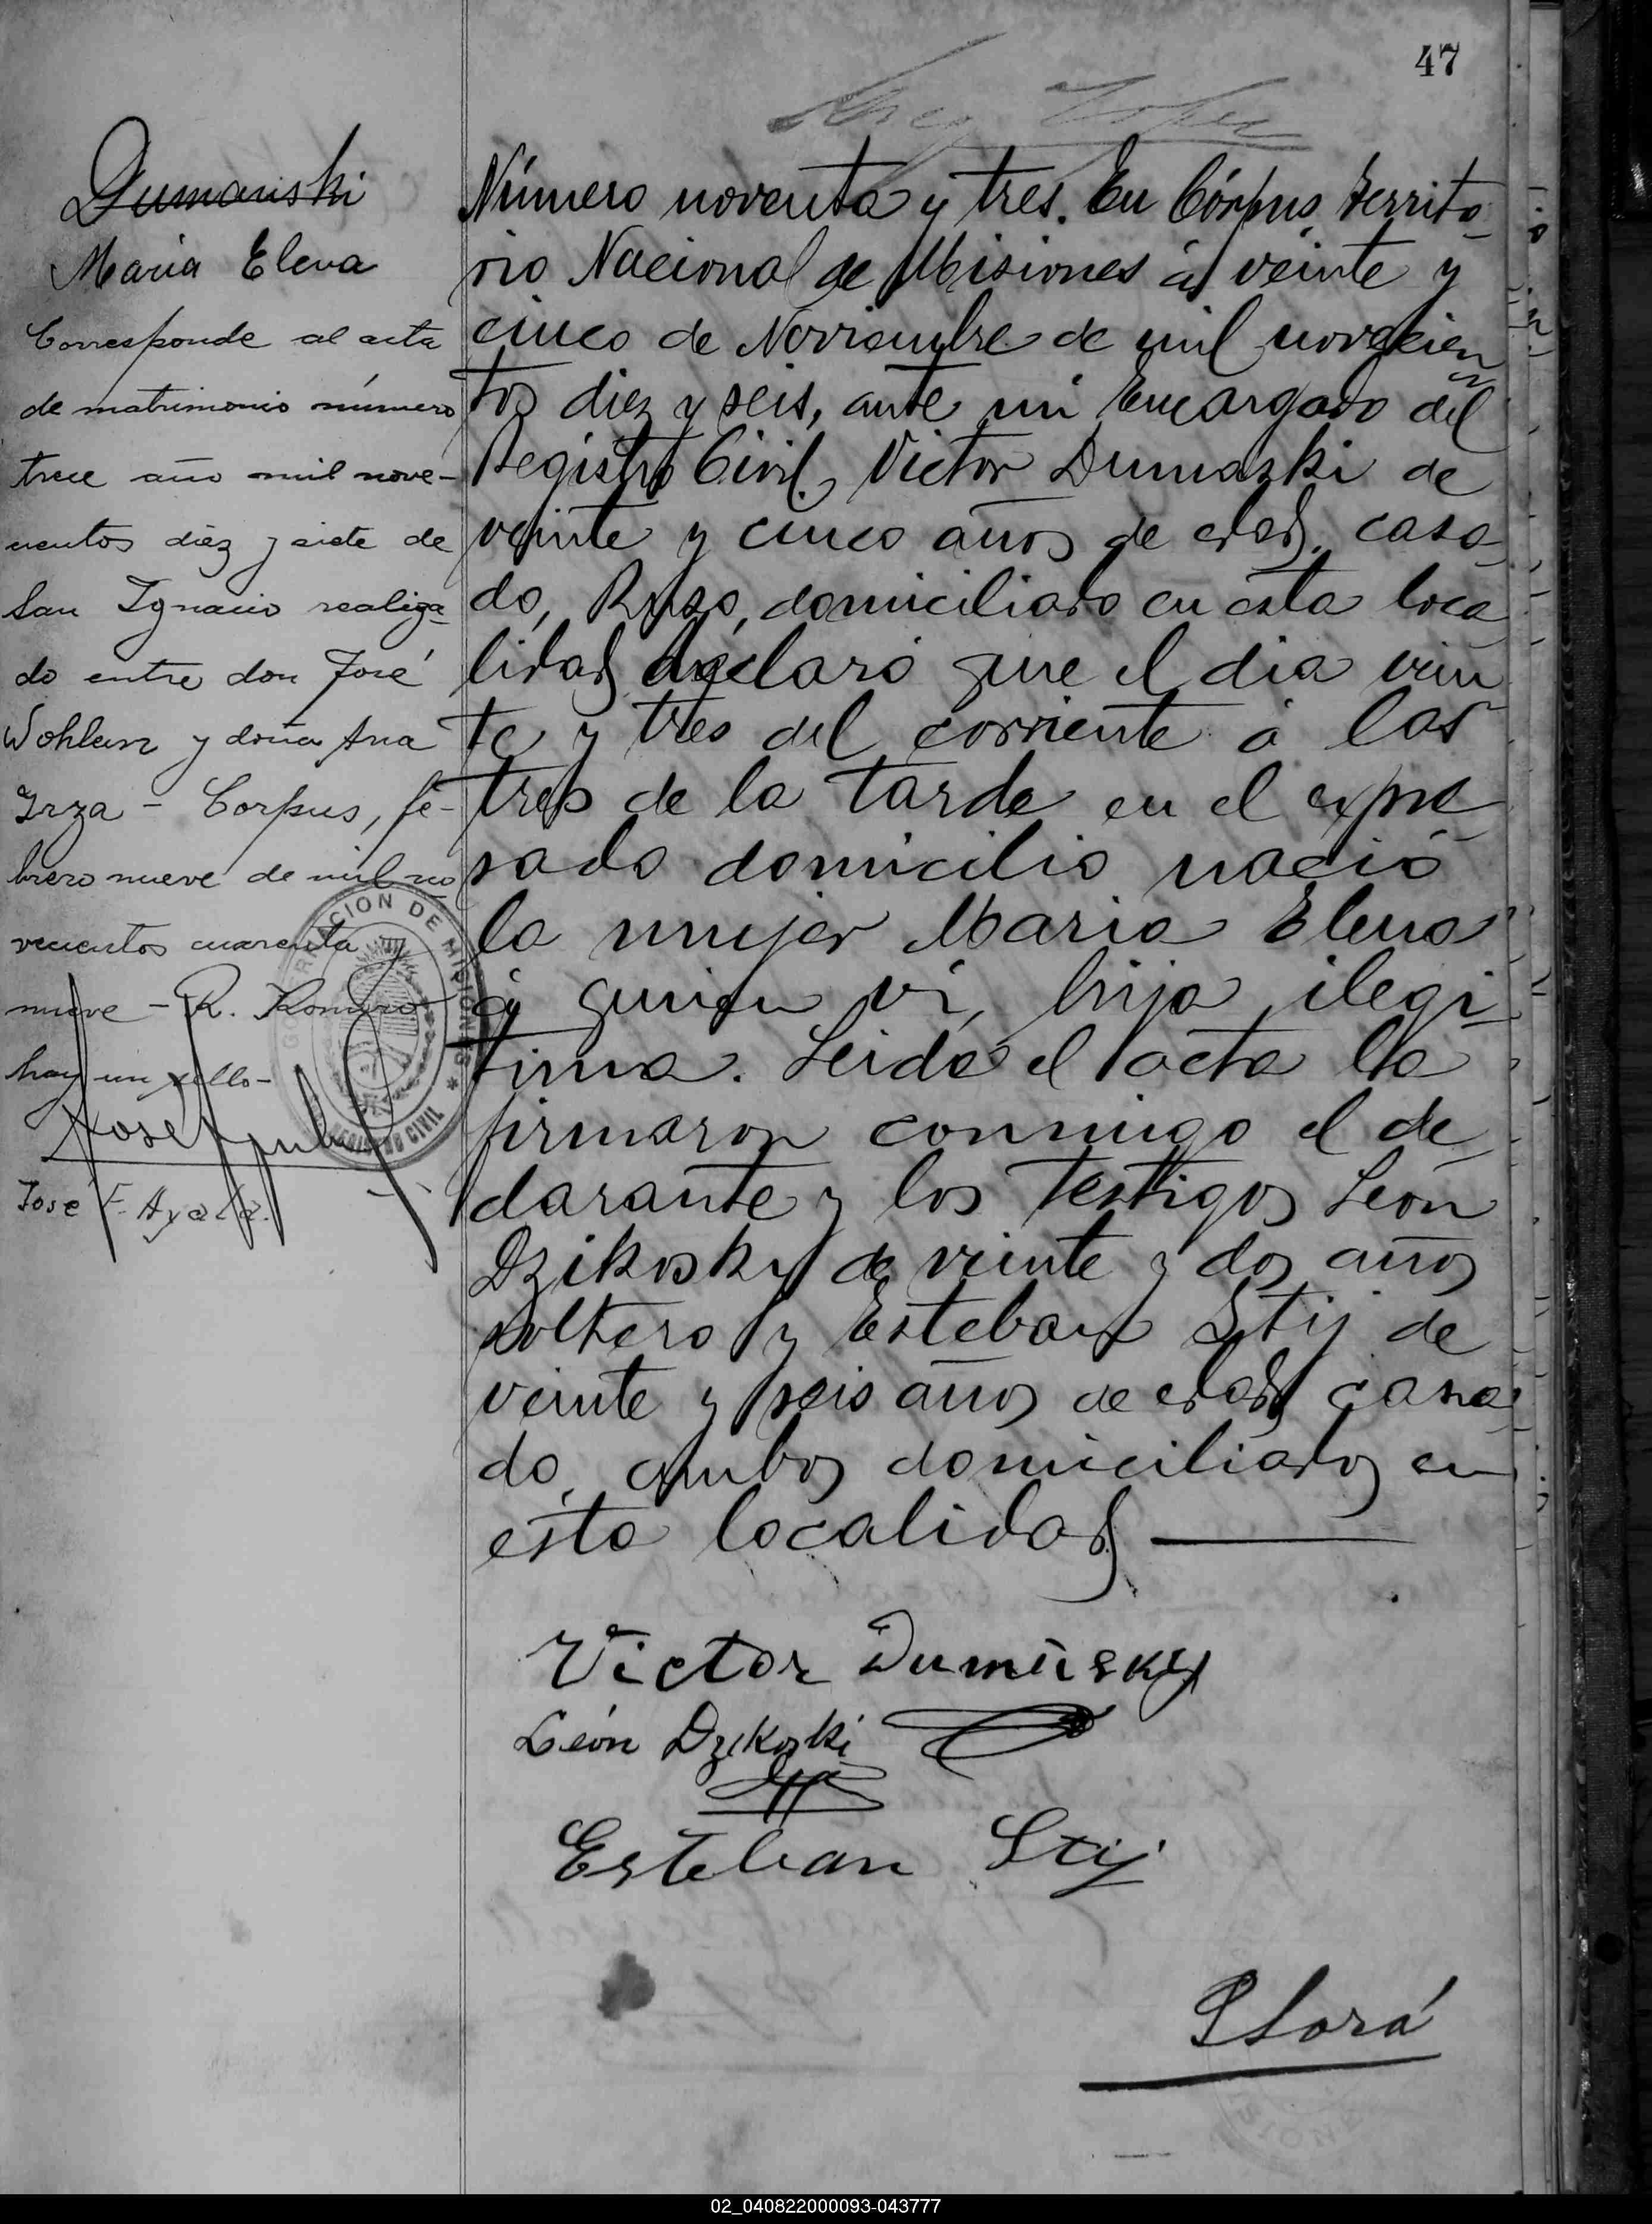 47
Dumanski
Maria Elena
Corresponde al acta
de matrimonio número
trece año mil nove-
cientos diez y siete de
San Ignacio realiza-
do entre don José
Wohlein y doña Ana
Irza - Corpus, fe-
brero nueve de mil no
vecientos cuarenta y
nueve - R. Romero
hay un sello-
José F. Ayala.
GOBERNACION DE MISIONES
REGISTRO CIVIL
Número noventa y tres. En Córpus Territo-
rio Nacional de Misiones á veinte y
cinco de Noviembre de mil novecien
tos diez y seis, ante mi Encargado del
Registro Civil, Victor Dumaski de
veinte y cinco años de edad, casa-
do, Ruso, domiciliado en esta loca
lidad declaró que el dia vein
te y tres del corriente á las
tres de la tarde en el expre
sado domicilio nació
la mujer Maria Elena
á quien vi, hija ilegi-
tima. Leida el acta la
firmaron conmigo el de-
clarante y los testigos León
Dzikosky de veinte y dos años
soltero y Esteban Stij de
veinte y seis años de edad casa
do, ambos domiciliados en
esta localidad
Victor Dumúsky
León Dzikoski
Esteban Stij
02_040822000093-043777